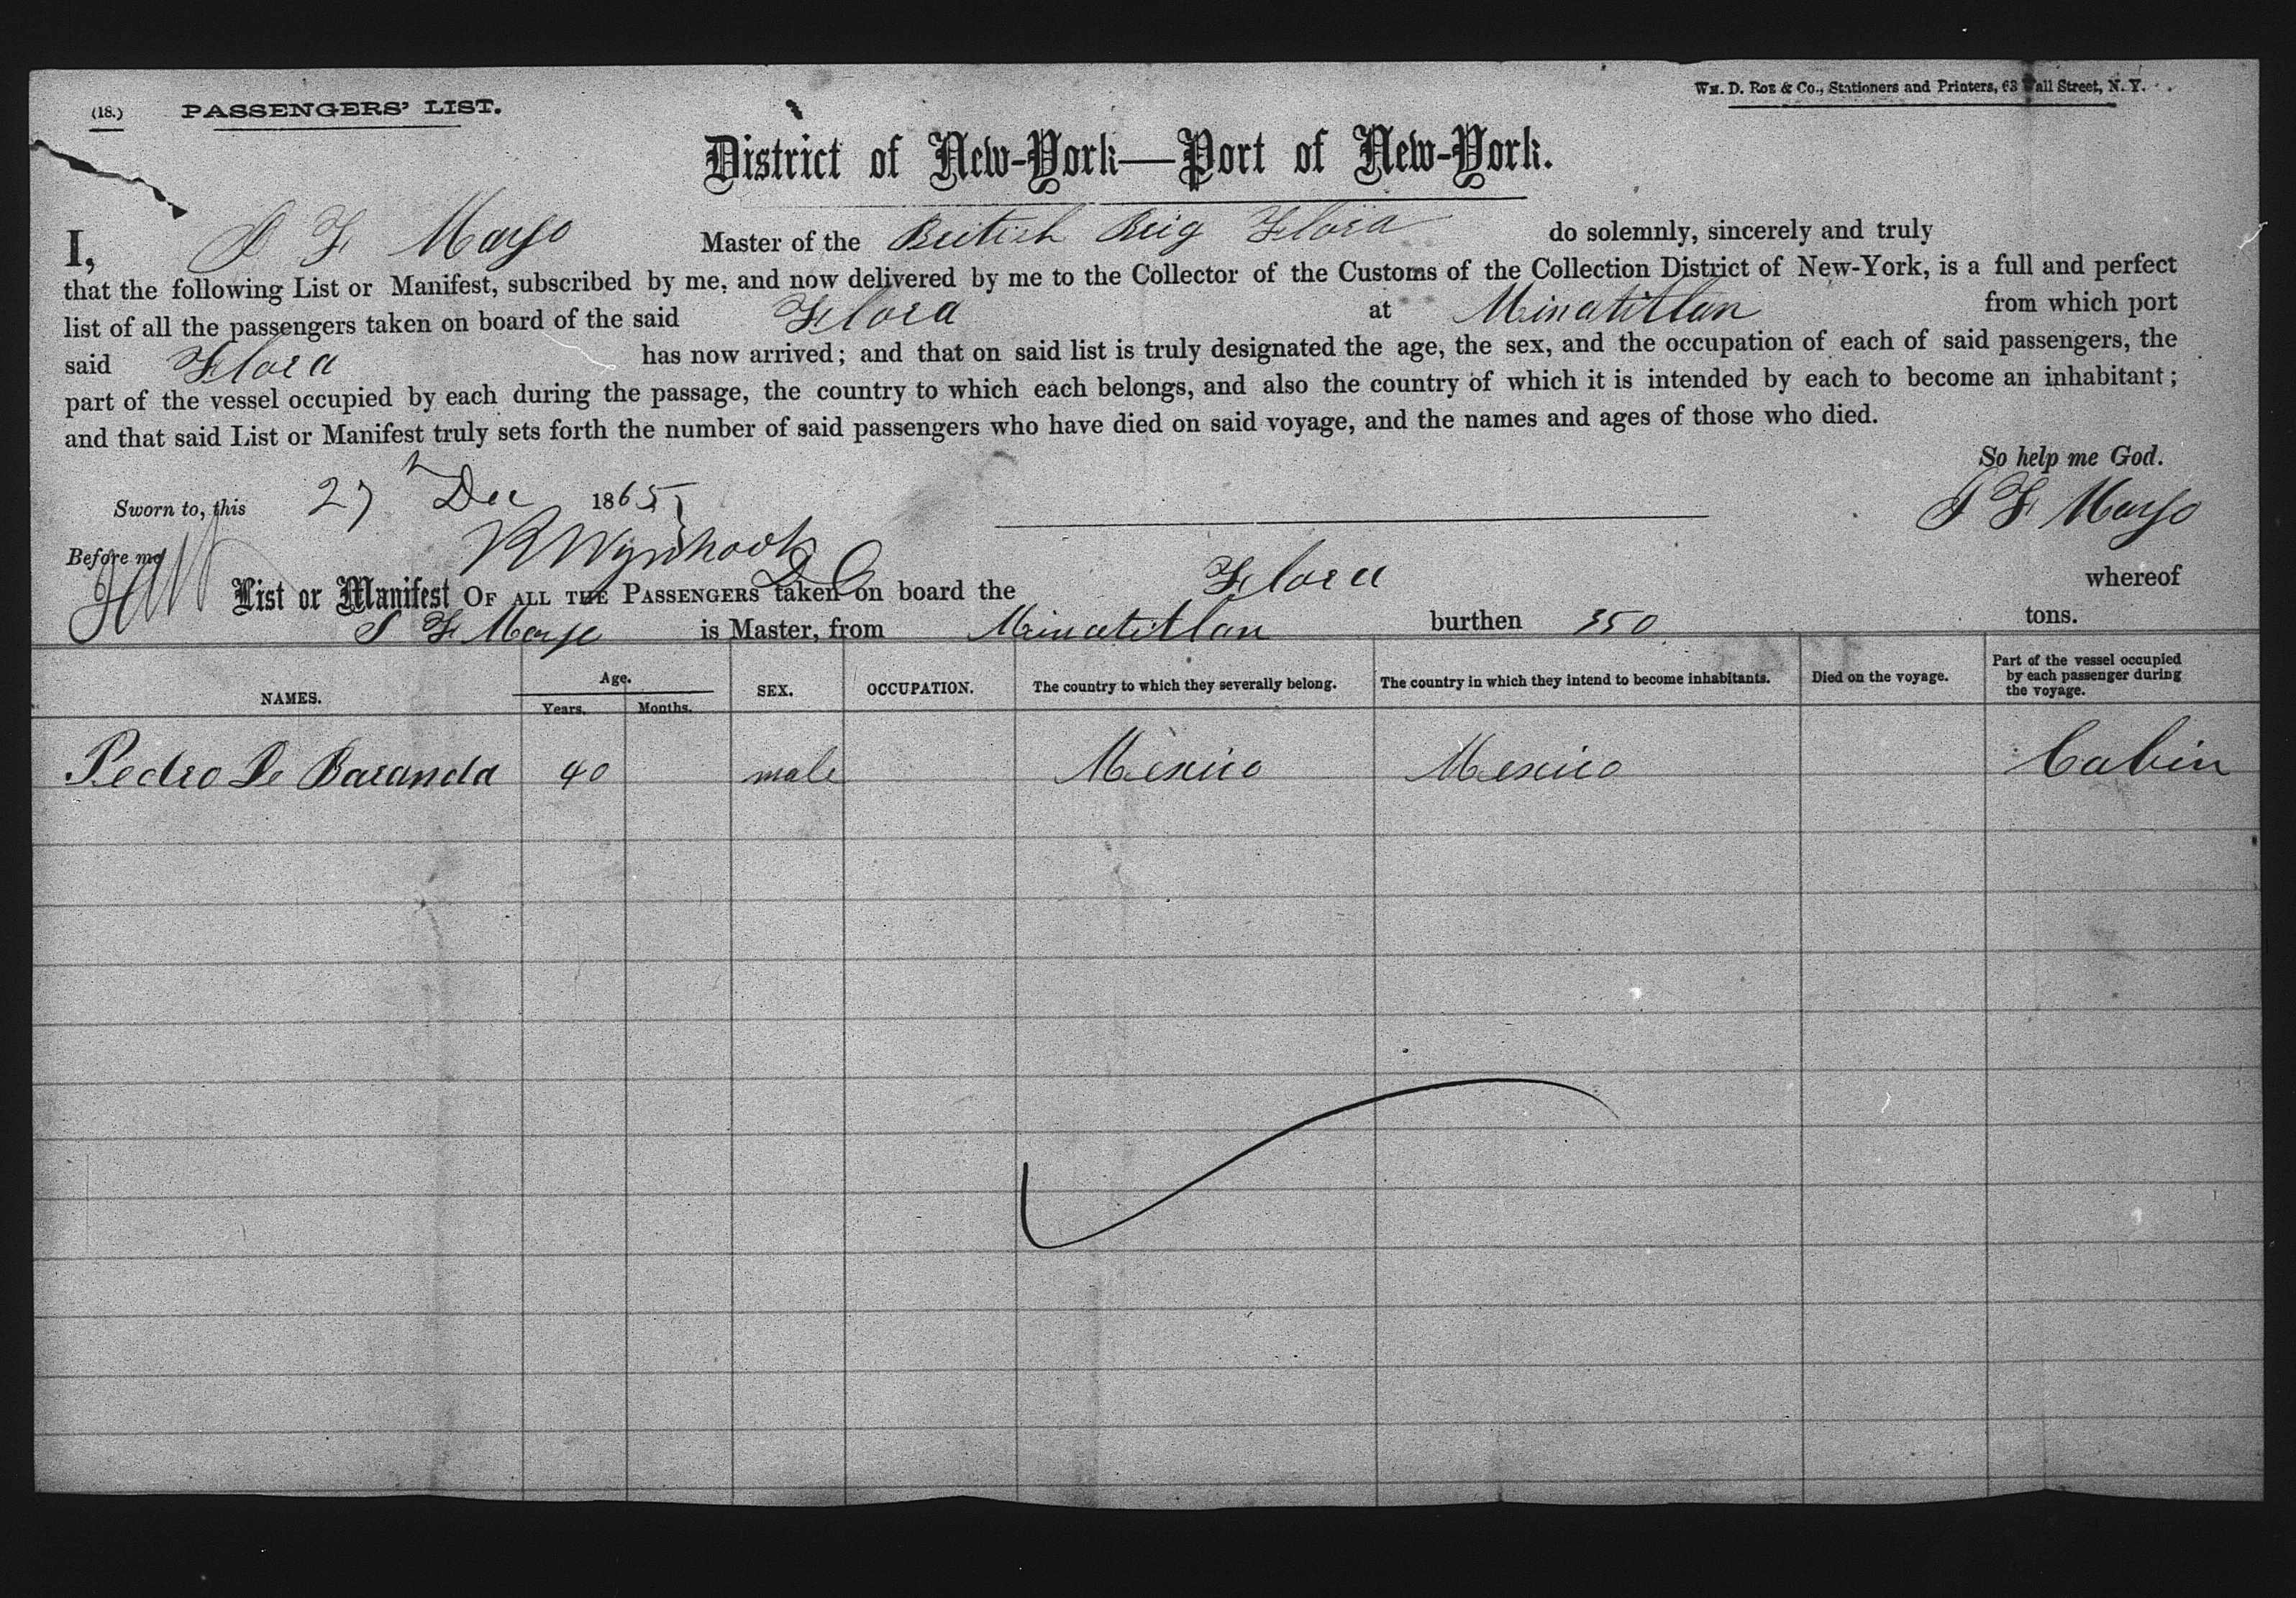 (18.) PASSENGERS' LIST.
WM. D. ROE & Co., Stationers and Printers, 63 Wall Street, N. Y.
District of New-York—Port of New-York.
I, S F Mayo Master of the British Brig Flora do solemnly, sincerely and truly
that the following List or Manifest, subscribed by me, and now delivered by me to the Collector of the Customs of the Collection District of New-York, is a full and perfect
list of all the passengers taken on board of the said Flora at Minatitlan from which port
said Flora has now arrived; and that on said list is truly designated the age, the sex, and the occupation of each of said passengers, the
part of the vessel occupied by each during the passage, the country to which each belongs, and also the country of which it is intended by each to become an inhabitant;
and that said List or Manifest truly sets forth the number of said passengers who have died on said voyage, and the names and ages of those who died.
So help me God.
Sworn to, this 27 Dec 1865
S F Mayo
Before me
List or Manifest OF ALL THE PASSENGERS taken on board the Flora whereof
S F Mayo is Master, from Minatitlan burthen 350 tons.
NAMES. Age. Years. Months. SEX. OCCUPATION. The country to which they severally belong. The country in which they intend to become inhabitants. Died on the voyage. Part of the vessel occupied by each passenger during the voyage.
Pedro De Baranda 40 male Mexico Mexico Cabin